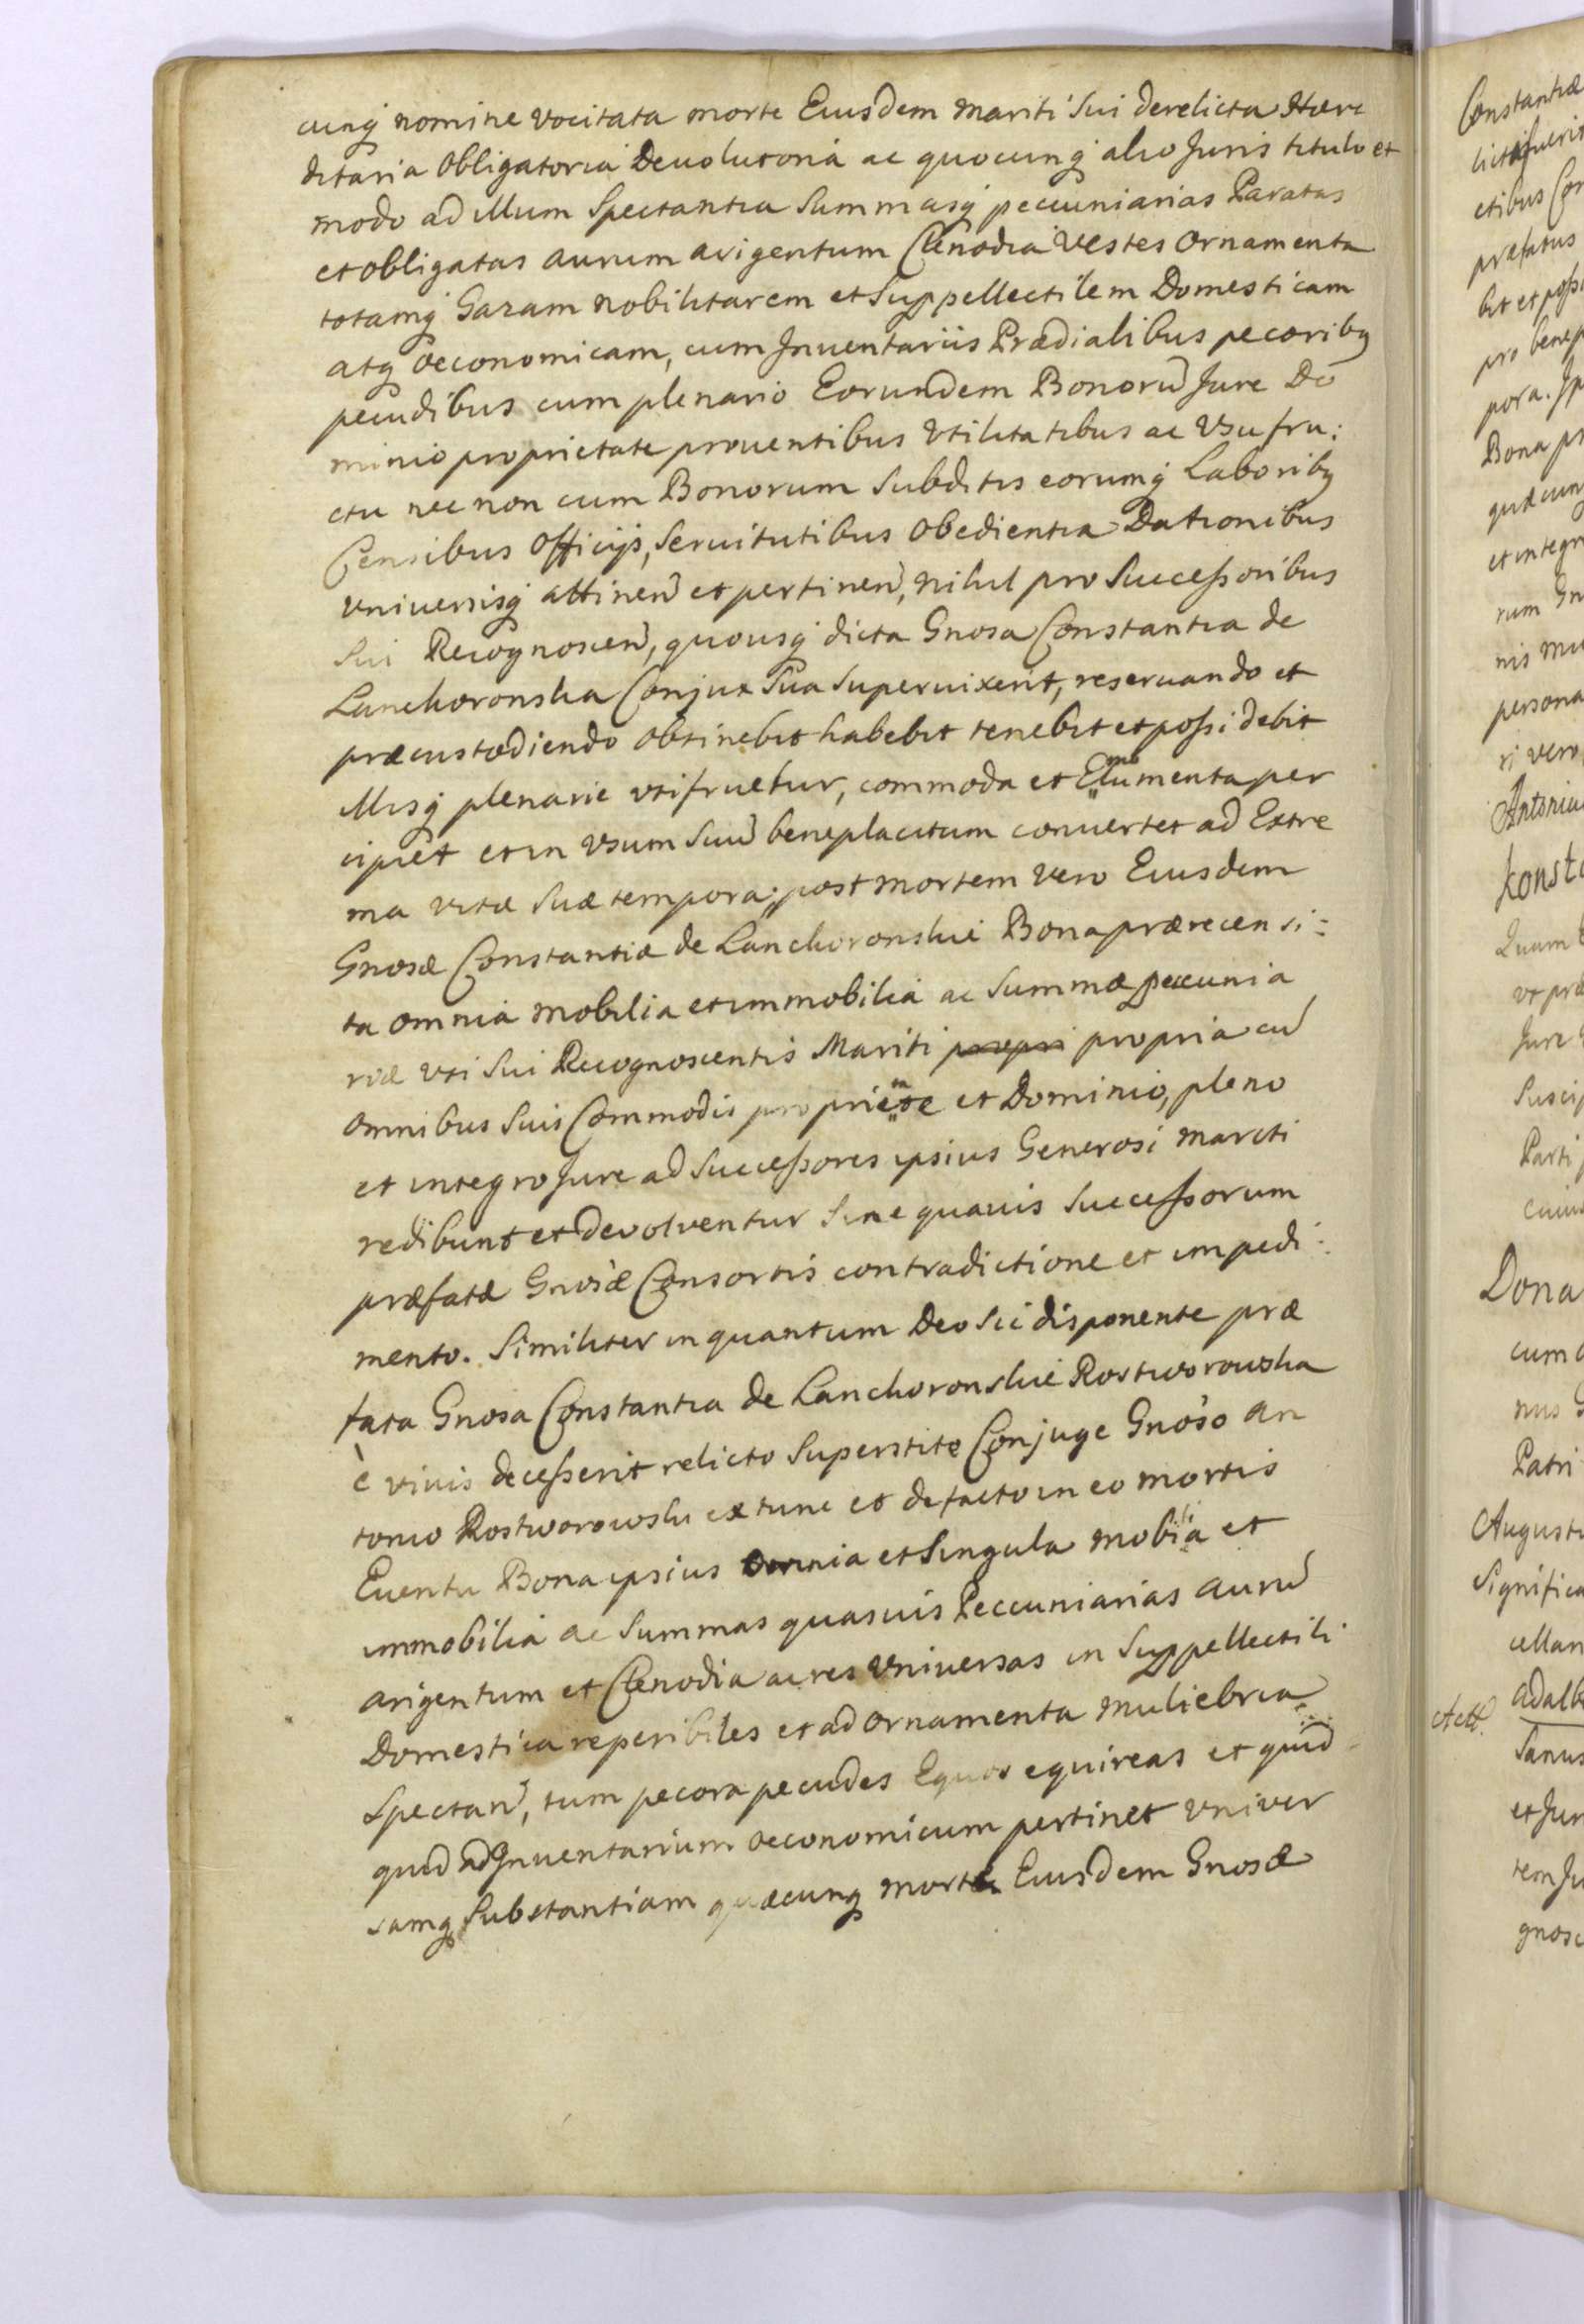 cunq nomine vocitata morte Eiusdem Mariti sui derelicta Hære
ditaria Obligatoria Deuolutoria ac quocunq alio Juris titulo et
modo ad illum Spectantia Summasq peccuniarias Paratas
et obligatas aurum arigentum Clenodia Vestes Ornamenta
totamq Gazam nobilitarem et Suppellectilem Domesticam
atq Oeconomicam, cum Jnuentariis Prædialibus pecoribq
pecudibus cum plenario Eorundem Bonorũ Jure Do
minio proprietate prouentibus Vtilitatibus ac Vsufru:
ctu nec non cum Bonorum Subditis eorumq Laboribq
Censibus Officijs, Seruitutibus Obedientia Dationibus
vniuersisq attinen̄ et pertinen̄, nihil pro Successoribus
Sui Recognoscen̄, quousq dicta Gnosa Constantia de
Lanchoronska Conjux Sua Superuixerit, reseruando et
præcustodiendo obtinebit habebit tenebit et possidebit
illisq plenarie vtifruetur, commoda et Elumenta per
cipiet et in Vsum Suũ beneplacitum conuertet ad Extre
ma vitæ Suæ tempora; post mortem vero Eiusdem
Gnosæ Constantiæ de Lanchoronskie Bona prærecensi:
ta omnia mobilia et immobilia ac Summæ peccunia
riæ vti Sui Recognoscentis Mariti propri propria cũ
omnibus Suis Commodis propriete et Dominio, pleno
et integro Jure ad Successores ipsius Generosi Mariti
redibunt et devolventur Sine quavis Successorum
præfatæ Gnosæ Consortis contradictione et impedi:
mento. Similiter in quantum Deo Sic disponente præ
fata Gnosa Constantia de Lanchoronskie Rostworowska
è vivis decesserit relicto Superstite Conjuge Gnoso An
tonio Rostworowski ex tunc et de facto in eo mortis
Euentu Bona ipsius Omnia et Singula mobilia et
immobilia ac Summas quasuis Peccuniarias aurũ
arigentum et Clenodia ac res Vniuersas in Suppellectili
Domestica reperibiles et ad Ornamenta muliebria
Spectan̄, tum pecora pecudes Equos equireas et quid
quid ad Jnuentarium Oeconomicum pertinet Vniver
samq Substantiam quæcunq morte Eiusdem Gnosæ
Constantiæ
etibus Con
præfatus
bit et possi
pro benep
pora. Jp
Bona pr
quæcun
et integr
rum Gn
nis mu
persona
ri vero
Antoniu
Konst
Quam
vt præ
Jure
Suscip
Parti
cuius
Dona
cum
nus G
Patri
Augusti
Significa
cellan
Adalb
Act.
Sanus
et Jur
tem Ju
gnosc